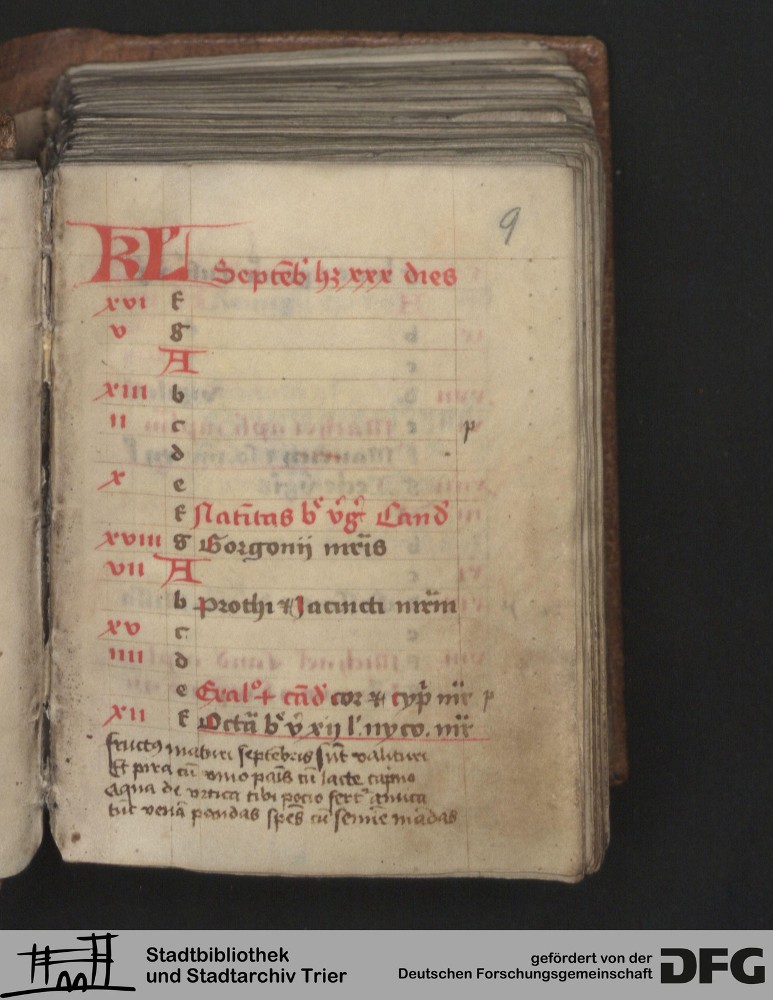 9
KL Septēb' hz xxx dies
xvi f
v g
A
xiii b
ii c p
d
x e
f Natītas b͛ v͛g͛ Cand'
xviii g Gorgonij mr̄is
vii A
b Prothi ⁊ Jacincti mr̄m
xv c
iiii d
e Exal° + cād' cor ⁊ cyp͛ mr̄ p
xii f Octā b͛ v͛ xij l'. nyco. mr̄
fructꝯ maturi septēbris sūt valituri
Et pira cū vino pāis cū lacte capino
Aqua de vrtica tibi pocio fert' amica
tūc venā pandas spēs cū semīe mādas
Stadtbibliothek
und Stadtarchiv Trier
gefördert von der
Deutschen Forschungsgemeinschaft
DFG